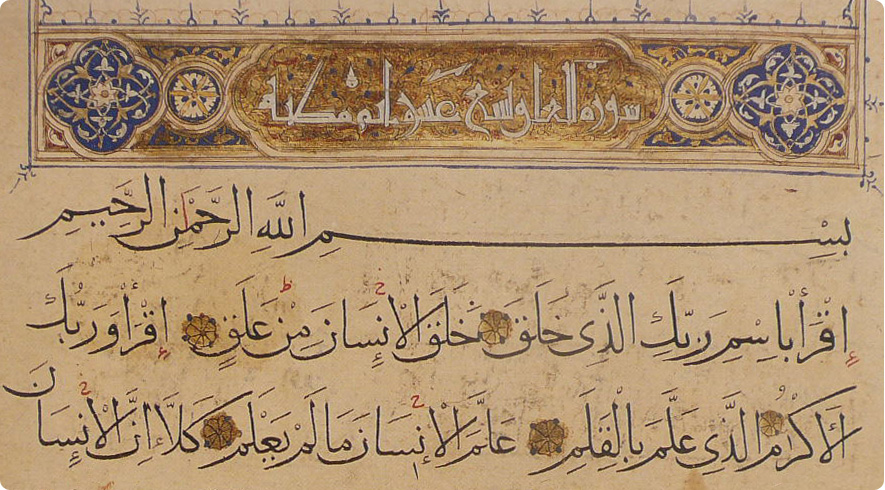 سورة العلق تسع عشر اية مكية
بِسْمِ اللَّهِ الرَّحْمٰنِ الرَّحِيمِ
إِقْرَأْ بِاسْمِ رَبِّكَ الَّذِى خَلَقَ خَلَقَ الْإِنْسَانَ مِنْ عَلَقٍ إِقْرَأْ وَرَبُّكَ
الْأَكْرَمُ الَّذِى عَلَّمَ بِالْقَلَمِ عَلَّمَ الْإِنْسَانَ مَا لَمْ يَعْلَمْ كَلَّا إِنَّ الْإِنْسَانَ